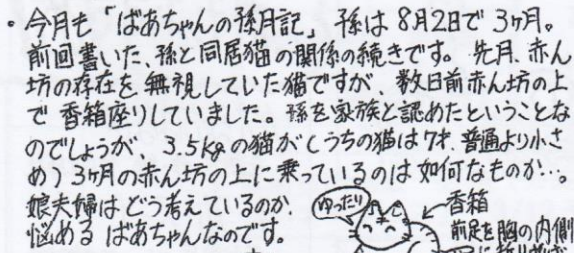 ・今月も「ばあちゃんの孫月記」 孫は8月2日で3ヶ月。
前回書いた、孫と同居猫の関係の続きです。先月、赤ん
坊の存在を無視していた猫ですが、数日前赤ん坊の上
で香箱座りしていました。孫を家族と認めたということな
のでしょうが、3.5kgの猫が(うちの猫は7才、普通より小さ
め)3ヶ月の赤ん坊の上に乗っているのは如何なものか…。
娘夫婦はどう考えているのか、
悩めるばあちゃんなのです。
ゆったり
←香箱
前足を胸の内側
に折り曲げ